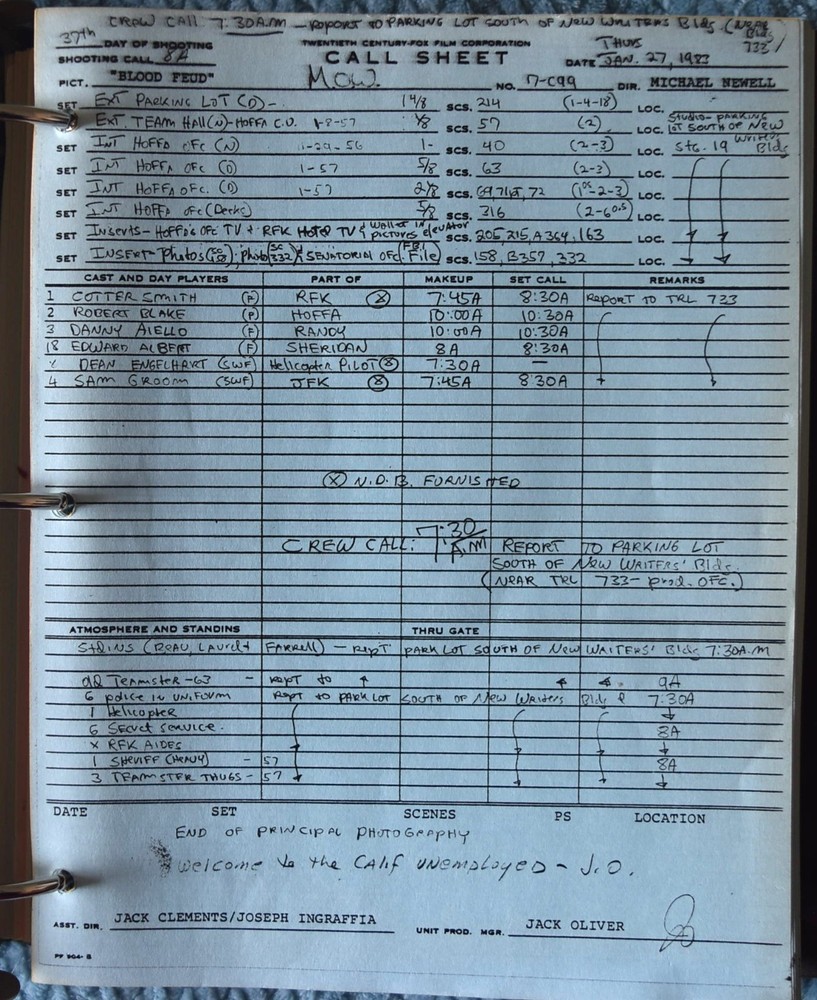 CREW CALL 7:30A.M — REPORT TO PARKING LOT SOUTH OF NEW WRITERS Bldg (NEAR Bldg 733)
37th DAY OF SHOOTING TWENTIETH CENTURY-FOX FILM CORPORATION THURS
SHOOTING CALL 8A CALL SHEET DATE JAN. 27, 1983
PICT. "BLOOD FEUD" M.O.W. NO. 7-C99 DIR. MICHAEL NEWELL
SET EXT PARKING LOT (D) - 1 4/8 SCS. 214 (1-4-18) LOC.
SET EXT. TEAM HALL (N) - HOFFA C.U. 1-8-57 1/8 SCS. 57 (2) LOC. STUDIO - PARKING LOT SOUTH OF NEW WRITERS Bldg
SET INT HOFFA OFC (N) 11-29-56 1- SCS. 40 (2-3) LOC. STG. 19
SET INT HOFFA OFC (D) 1-57 5/8 SCS. 63 (2-3) LOC.
SET INT HOFFA OFC. (D) 1-57 2/8 SCS. 72 LOC.
SET INT HOFFA OFC (Decks) 5/8 SCS. 316 LOC.
SET Inserts - HOFFA'S OFC TV + RFK Hotel TV & wallet in pictures elevator SCS. 205, 215, A364, 163 LOC.
SET INSERT Photos; photo (SC 332) & SENATORIAL OFC. (F.B.I. File) SCS. 158, B357, 332 LOC.
CAST AND DAY PLAYERS PART OF MAKEUP SET CALL REMARKS
1 COTTER SMITH (F) RFK (X) 7:45A 8:30A REPORT TO TRL 733
2 ROBERT BLAKE (F) HOFFA 10:00A 10:30A
3 DANNY AIELLO (F) RANDY 10:00A 10:30A
18 EDWARD ALBERT (F) SHERIDAN 8A 8:30A
Y DEAN ENGELHART (SWF) Helicopter PILOT (X) 7:30A —
4 SAM GROOM (SWF) JFK (X) 7:45A 8:30A
(X) N.D.B. FURNISHED
CREW CALL: 7:30 A.M REPORT TO PARKING LOT
SOUTH OF NEW WRITERS' Bldg.
(NEAR TRL 733 - prod. OFC.)
ATMOSPHERE AND STANDINS THRU GATE
STDINS (BEAU, LAUREL + FARRELL) — REPT PARK LOT SOUTH OF NEW WRITERS' Bldg 7:30A.M
TEAMSTER - 63 - REPT TO 9A
6 police IN UNIFORM REPT TO PARK LOT SOUTH OF NEW WRITERS Bldg 7:30A
1 Helicopter
6 Secret service. 8A
X RFK AIDES
1 SHERIFF (HEAVY) - 57 8A
3 TEAMSTER THUGS - 57
DATE SET SCENES PS LOCATION
END OF PRINCIPAL PHOTOGRAPHY
Welcome to the CALIF UNEMPLOYED - J.O.
ASST. DIR. JACK CLEMENTS/JOSEPH INGRAFFIA UNIT PROD. MGR. JACK OLIVER
PF 904- B